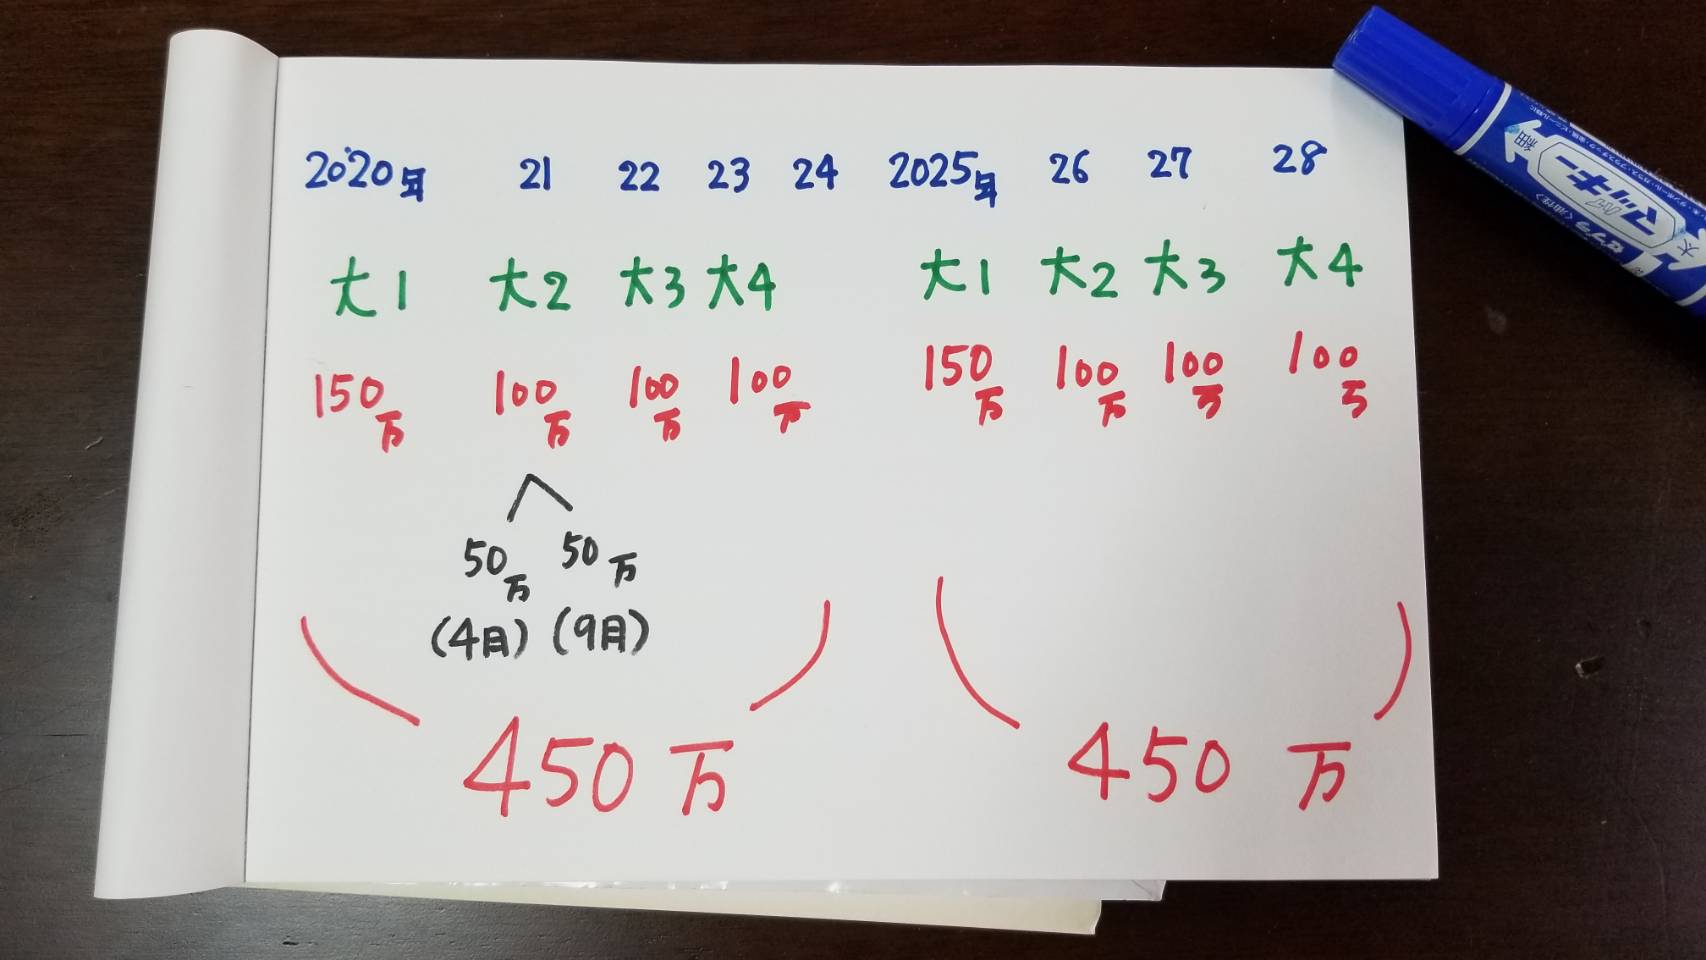 2020年 21 22 23 24 2025年 26 27 28
大1 大2 大3 大4 大1 大2 大3 大4
150万 100万 100万 100万 150万 100万 100万 100万
50万 50万
(4月) (9月)
450万 450万
マッキー
細
太
ゼブラ